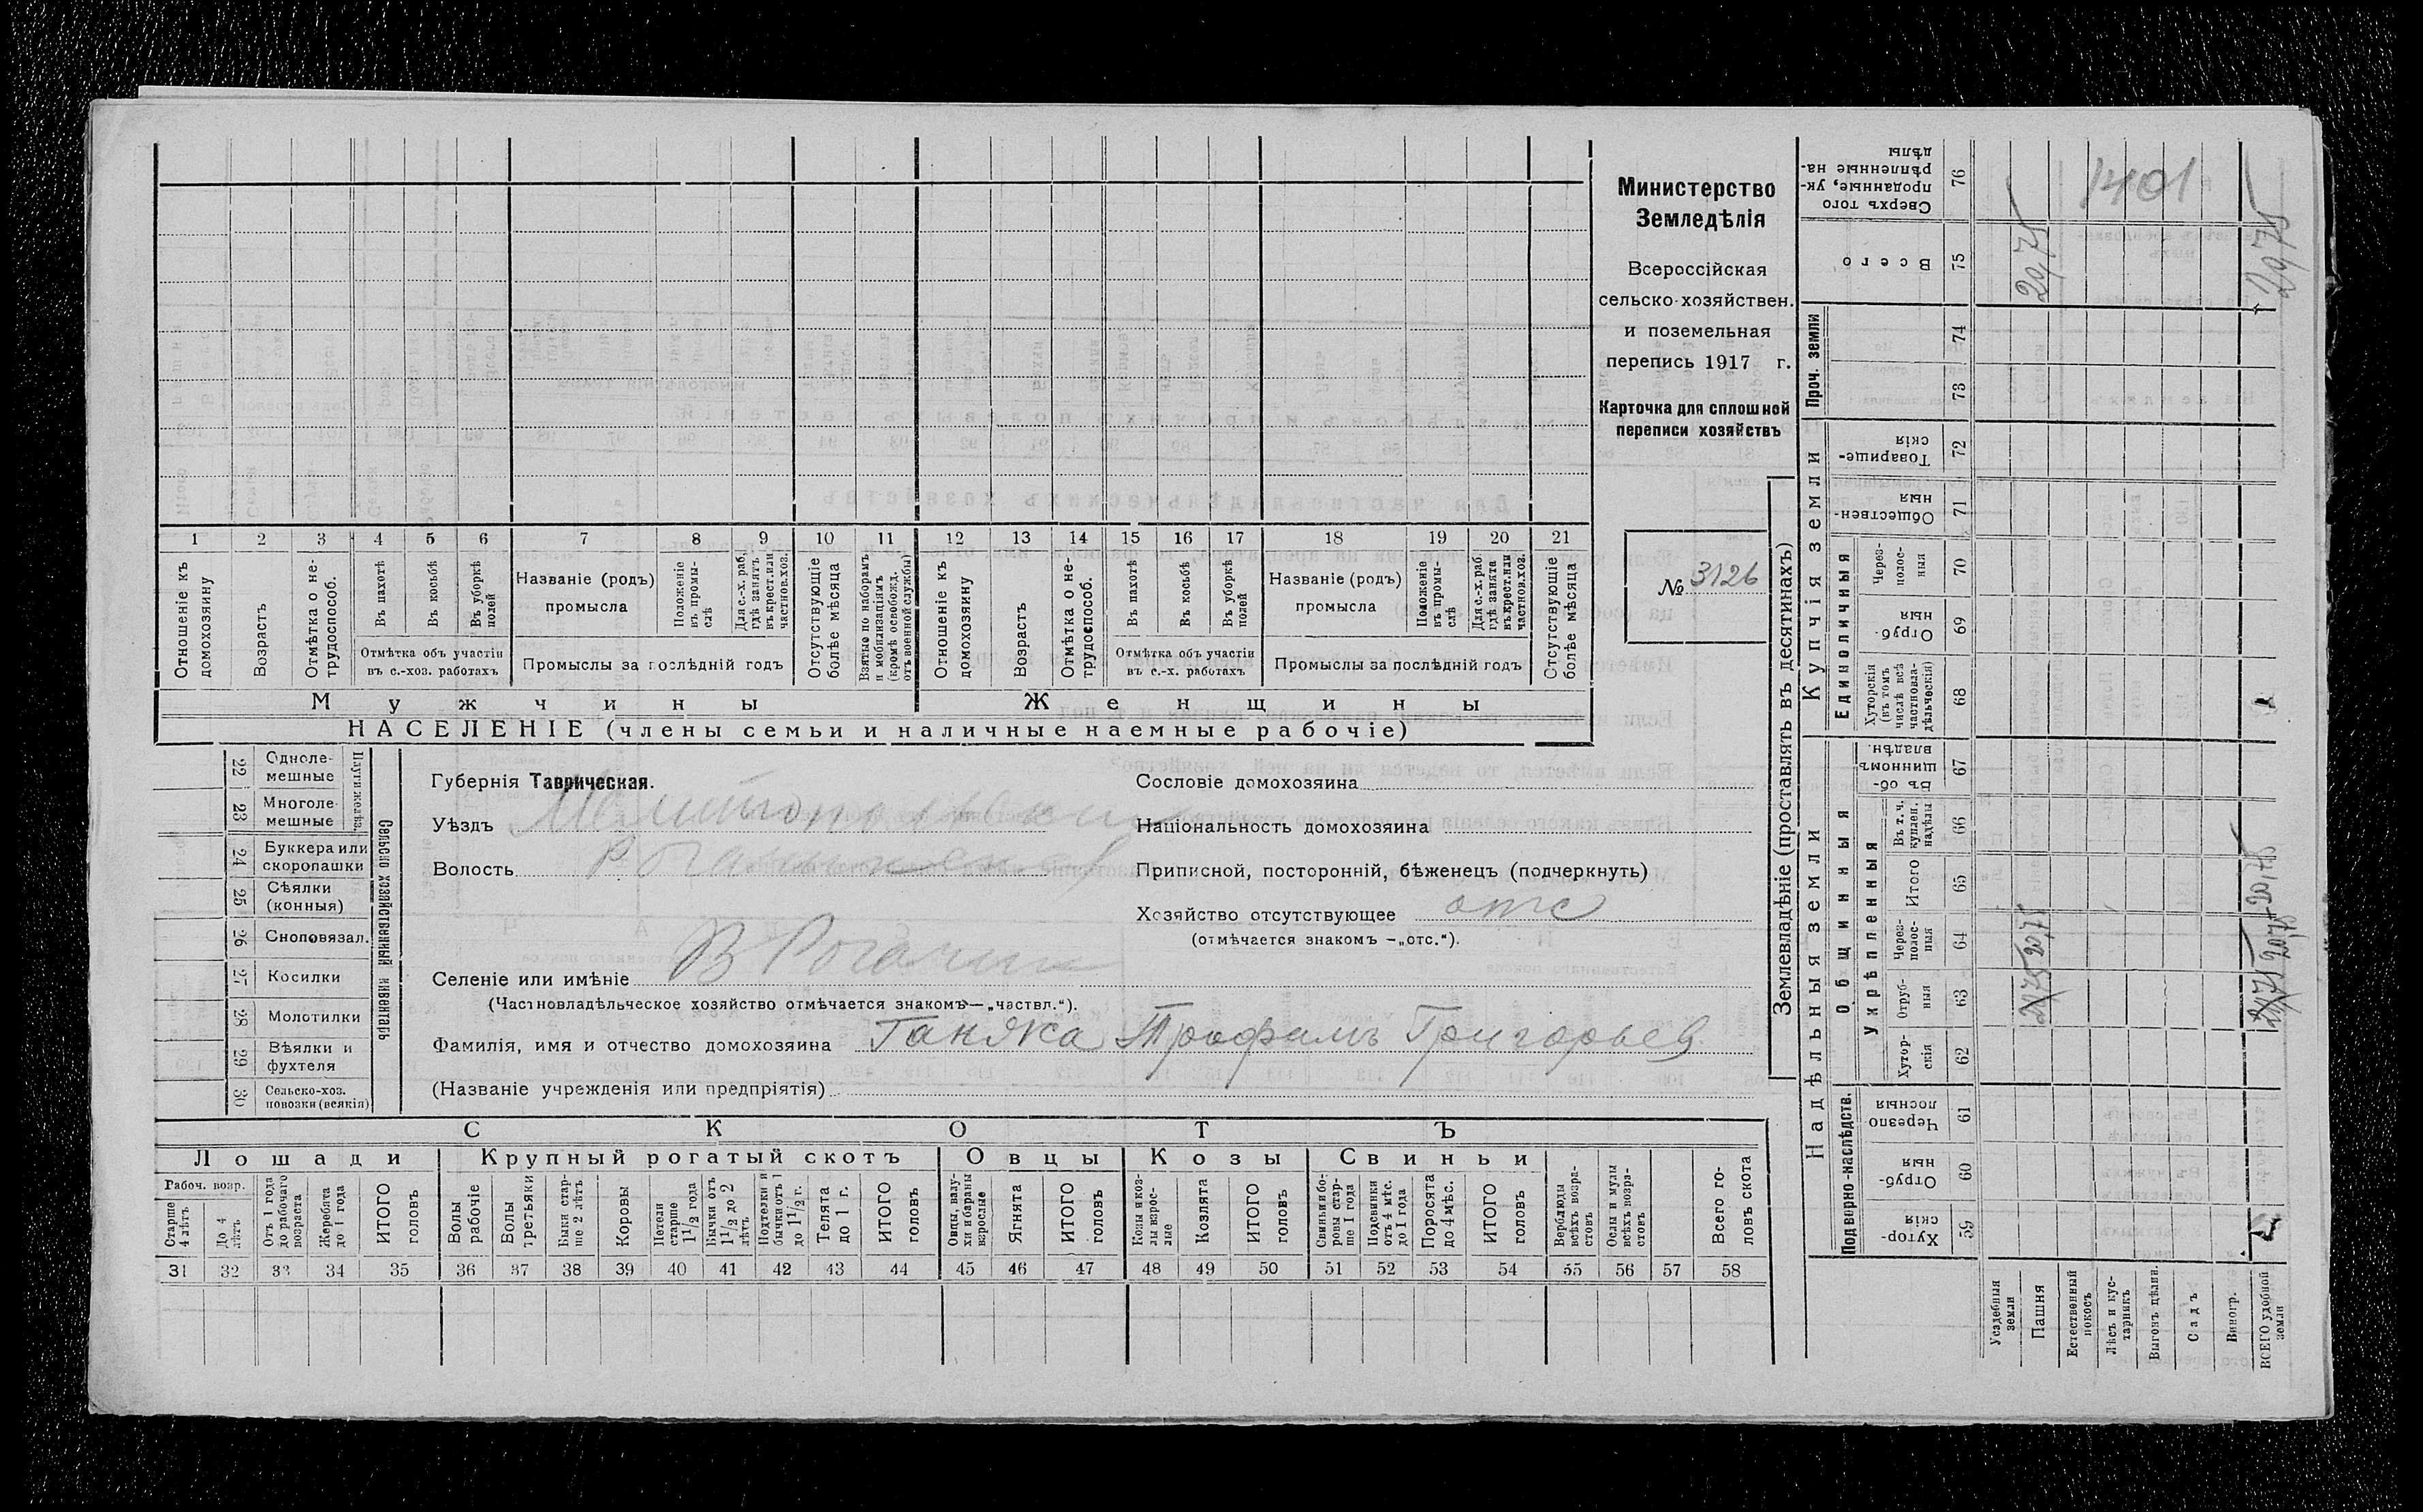 1 2 3 4 5 6 7 8 9 10 11 12 13 14 15 16 17 18 19 20 21
Отношеніе къ домохозяину
Возрастъ
Отмѣтка о не-
трудоспособ.
Въ пахотѣ
Въ косьбѣ
Въ уборкѣ
полей
Отмѣтка объ участіи
въ с.-хоз. работахъ
Названіе (родъ)
промысла
Положеніе
въ промы-
слѣ
Для с.-х. раб.
гдѣ занятъ
въ крест. или
частнов. хоз.
Промыслы за послѣдній годъ
Отсутствующіе
болѣе мѣсяца
Взятые по наборамъ
и мобилизаціямъ
(кромѣ освобожд.
отъ военной службы)
Отношеніе къ
домохозяину
Возрастъ
Отмѣтка о не-
трудоспособ.
Въ пахотѣ
Въ косьбѣ
Въ уборкѣ
полей
Отмѣтка объ участіи
въ с.-х. работахъ
Названіе (родъ)
промысла
Положеніе
въ промы-
слѣ
Для с.-х. раб
гдѣ занята
въ крест. или
частнов. хоз.
Промыслы за послѣдній годъ
Отсутствующіе
болѣе мѣсяца
Мужчины
Женщины
НАСЕЛЕНІЕ (члены семьи и наличные наемные рабочіе)
Министерство
Земледѣлія
Всероссійская
сельско-хозяйствен.
и поземельная
перепись 1917 г.
Карточка для сплошной
переписи хозяйствъ
№ 3126
22 Одноле-
мешные
23 Многоле-
мешные
24 Буккера или
скоропашки
25 Сѣялки
(конныя)
26 Сноповязал.
27 Косилки
28 Молотилки
29 Вѣялки и
фухтеля
30 Сельско-хоз.
повозки (всякія)
Сельско хозяйственный инвентарь
Губернія Таврическая.
Уѣздъ Мелитопольскій
Волость
Селеніе или имѣніе В Рогачик
(Частновладѣльческое хозяйство отмѣчается знакомъ—„частвл.“).
Фамилія, имя и отчество домохозяина Ганжа Трофимъ Григорьев
(Названіе учрежденія или предпріятія)
Сословіе домохозяина
Національность домохозяина
Приписной, посторонній, бѣженецъ (подчеркнуть)
Хозяйство отсутствующее отс
(отмѣчается знакомъ —„отс.“).
СКОТЪ
Лошади
Крупный рогатый скотъ
Овцы
Козы
Свиньи
Рабоч. возр.
Старше
4 лѣтъ
До 4
лѣтъ
Отъ 1 года
до рабочаго
возраста
Жеребята
до 1 года
ИТОГО
головъ
Волы
рабочіе
Волы
третьяки
Быки стар-
ше 2 лѣтъ
Коровы
Нетели
старше
1 1/2 года
Бычки отъ
1 1/2 до 2
лѣтъ
Подтелки и
бычки отъ 1
до 1 1/2 г.
Телята
до 1 г.
ИТОГО
головъ
Овцы, валу-
хи и бараны
взрослые
Ягнята
ИТОГО
головъ
Козы и коз-
лы взрос-
лые
Козлята
ИТОГО
головъ
Свиньи и бо-
ровы стар-
ше 1 года
Подсвинки
отъ 4 мѣс.
до 1 года
Поросята
до 4 мѣс.
ИТОГО
головъ
Верблюды
всѣхъ возра-
стовъ
Ослы и мулы
всѣхъ возра-
стовъ
Всего го-
ловъ скота
31 32 33 34 35 36 37 38 39 40 41 42 43 44 45 46 47 48 49 50 51 52 53 54 55 56 57 58
Землевладѣніе (проставлять въ десятинахъ)
Надѣльныя земли
Купчія земли
Проч. земли
Подворно-наслѣдств.
Общинныя
Укрѣпленныя
Единоличныя
Сверхъ того
проданные, ук-
рѣпленные на-
дѣлы
76
1401
Всего
75
20,75
20,75
74
73
Товарище-
скія
72
Обществен-
ныя
71
Через-
полос-
ныя
70
Отруб-
ныя
69
Хуторскія
(въ томъ
числѣ всѣ
частновла-
дѣльческія)
68
Въ об-
щинномъ
владѣн.
67
Въ т. ч.
куплен.
надѣлы
66
Итого
65
Через-
полос-
ныя
64
20,75
Отруб-
ныя
63
Хутор-
скія
62
Черезпо
лосныя
61
Отруб-
ныя
60
Хутор-
скія
59
Усадебныя
земли
Пашня
Естественный
покосъ
Лѣсъ и кус-
тарникъ
Выгонъ цѣлин.
Садъ
Виногр.
ВСЕГО удобной
земли